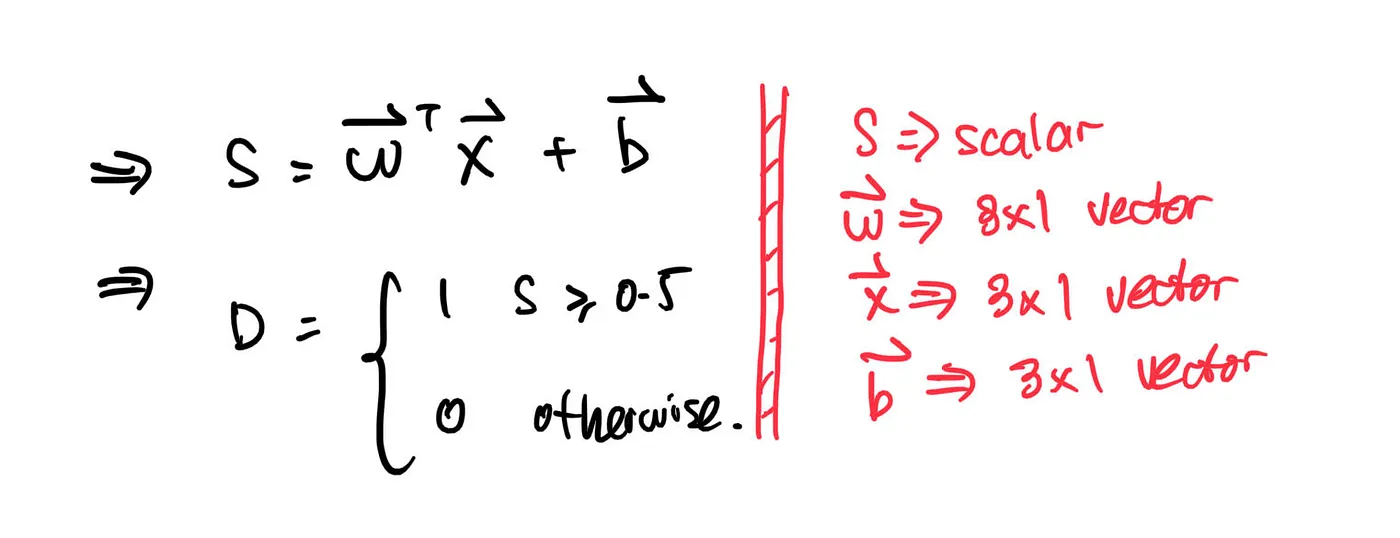 ⇒ S = w⃗ᵀ x⃗ + b⃗
⇒ D = { 1 S ⩾ 0.5
0 otherwise.
S ⇒ scalar
w⃗ ⇒ 3x1 vector
x⃗ ⇒ 3x1 vector
b⃗ ⇒ 3x1 vector